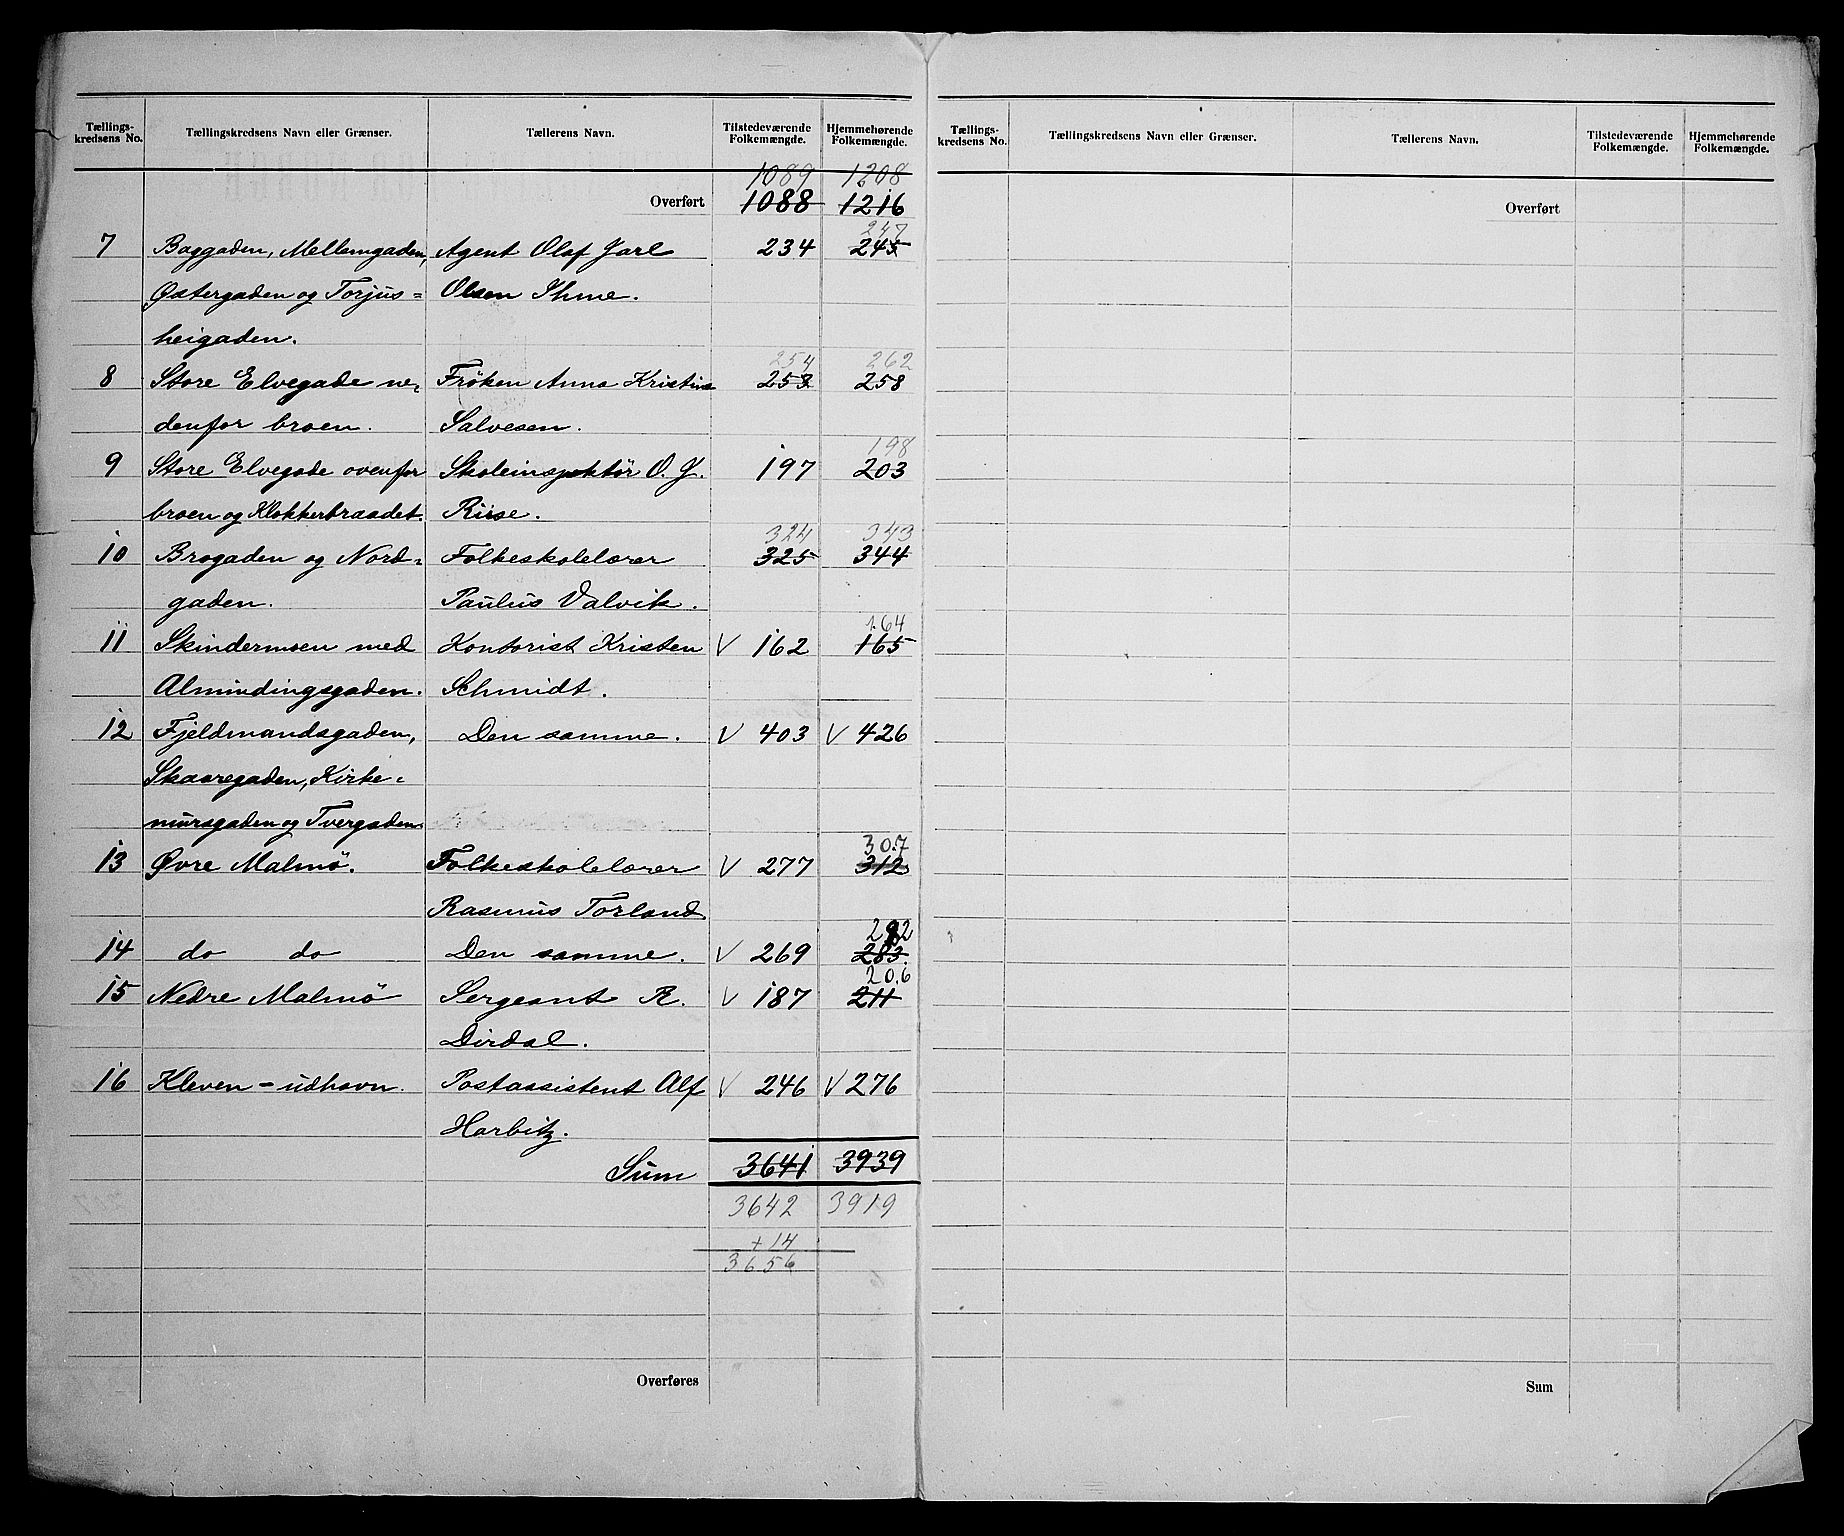 Tællings-kredsens No. Tællingskredsens Navn eller Grænser. Tællerens Navn. Tilstedeværende Folkemængde. Hjemmehørende Folkemængde.
1089 1208
Overført 1088 1216
247
7 Baggaden, Mellemgaden, Agent Olaf Jarl 234 245
Østergaden og Torjus= Olsen Ihme.
heigaden.
254 262
8 Store Elvegade ne- Frøken Anna Kristine 253 258
denfor broen. Salvesen.
198
9 Store Elvegade ovenfor Skoleinspektør O. J. 197 203
broen og Klokkerbraadet. Riise.
324 343
10 Brogaden og Nord- Folkeskolelærer 325 344
gaden. Paulus Valvik.
164
11 Skindermoen med Kontorist Kristen V 162 165
Almindingsgaden. Schmidt.
12 Fjeldmandsgaden, Den samme. V 403 V 426
Skaaregaden, Kirke-
mursgaden og Tvergaden.
307
13 Øvre Malmö. Folkeskolelærer V 277 312
Rasmus Torland
292
14 do do Den samme. V 269 283.
206
15 Nedre Malmö Sergeant R. V 187 211
Dirdal.
16 Kleven - udhavn. Postassistent Alf V 246 V 276
Harbitz.
Sum 3641 3939
3642 3919
+14
3656
Overføres
Tællings-kredsens No. Tællingskredsens Navn eller Grænser. Tællerens Navn. Tilstedeværende Folkemængde. Hjemmehørende Folkemængde.
Overført
Sum